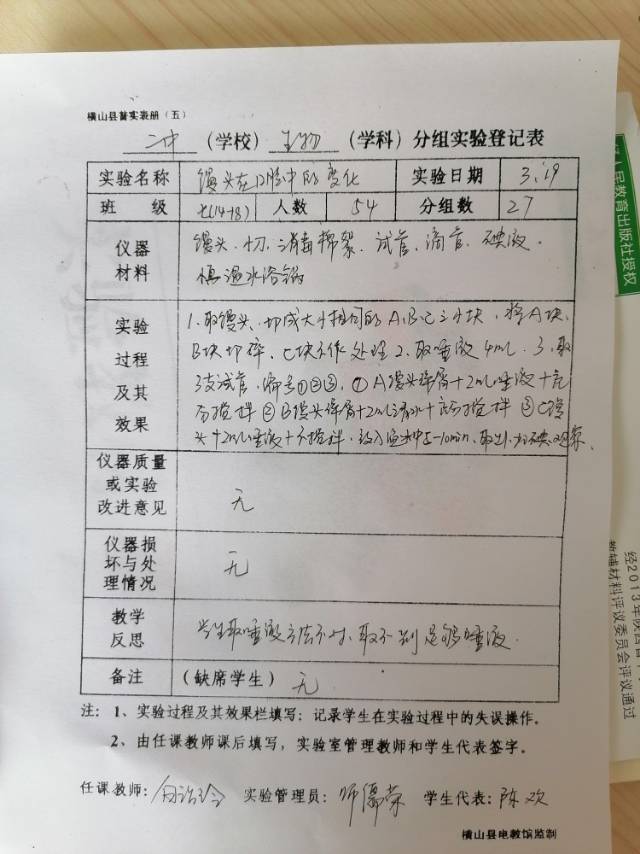 横山县普实表册（五）
二中（学校）生物（学科）分组实验登记表
实验名称 馒头在口腔中的变化 实验日期 3.19
班级 七(14-18) 人数 54 分组数 27
仪器材料 馒头、刀、消毒棉絮、试管、滴管、碘液、
恒温水浴锅
实验过程及其效果 1、取馒头、切成大小相同的A、B、C三小块，将A块、
B块切碎、C块不作处理 2、取唾液4ml、3、取
3支试管，编号①②③，① A馒头碎屑+2ml唾液+充
分搅拌 ② B馒头碎屑+2ml清水+充分搅拌 ③ C馒
头+2ml唾液+不搅拌、放入温水中5-10min，取出、加碘、观察、
仪器质量或实验改进意见 无
仪器损坏与处理情况 无
教学反思 学生取唾液方法不对，取不到足够唾液.
备注 （缺席学生） 无
注：1、实验过程及其效果栏填写：记录学生在实验过程中的失误操作。
2、由任课教师课后填写，实验室管理教师和学生代表签字。
任课教师： 实验管理员： 学生代表：陈欢
横山县电教馆监制
人民教育出版社授权
经2013年陕西省
教辅材料评议委员会评议通过